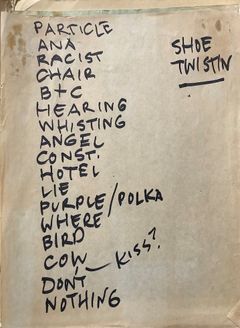 PARTICLE
ANA
RACIST
CHAIR
B+C
HEARING
WHISTING
ANGEL
CONST.
HOTEL
LIE
PURPLE/POLKA
WHERE
BIRD
COW
KISS?
DON'T
NOTHING
SHOE
TWISTIN